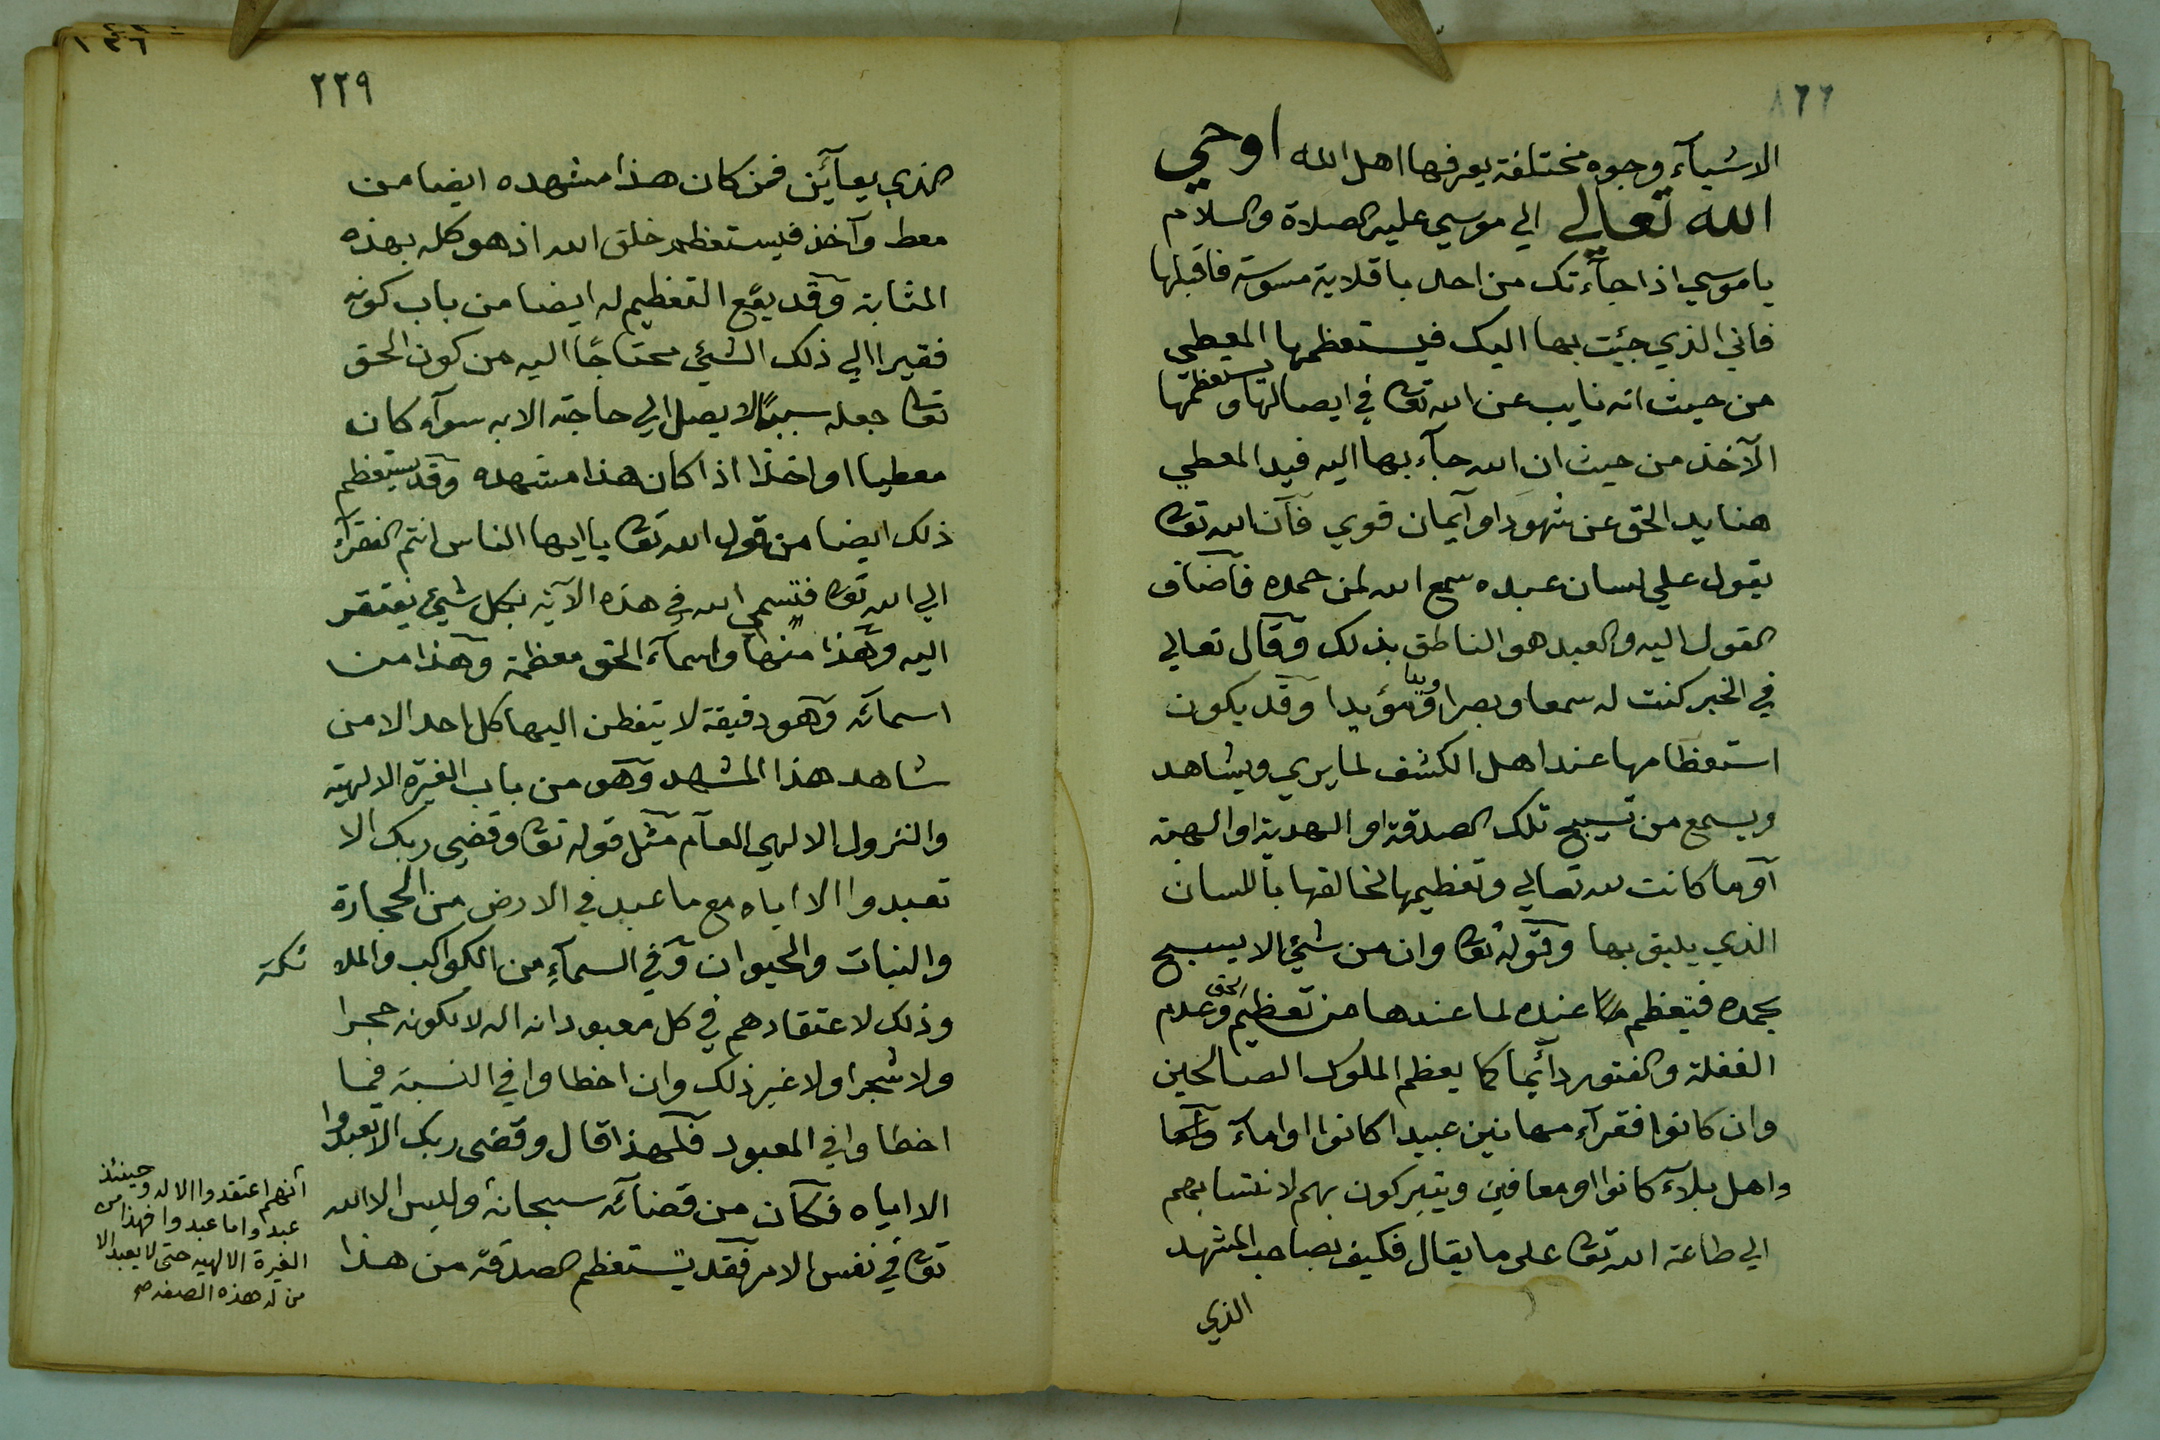 الاشيآء وجوه مختلفة يعرفها اهل الله اوحي
الله تعالي الي موسي عليه الصلاة والسلام
يا موسي اذا جاءتك من احد باقلاية مسوسة فاقبلها
فاني الذي جيئت بها اليك فيستعظمها المعطي
من حيث انه نايب عن الله تعا في ايصالها ويستعظمها
الآخذ من حيث ان الله جآء بها اليه فيد المعطي
هنا يد الحق عن شهود او آيمان قوي فان الله تعا
يقول علي لسان عبده سمع الله لمن حمده فاضاف
القول اليه والعبد هو الناطق بذلك وقال تعالي
في الخبر كنت له سمعا وبصرا ويدا ومؤيدا وقد يكون
استعظامها عند اهل الكشف لما يري ويشاهد
ويسمع من تسبيح تلك الصدقة او الهدية او الهبة
آو ما كانت لله تعالي وتعظيمها لخالقها باللسان
الذي يليق بها وقوله تعا وان من شيئ الا يسبح
بحمده فيعظم عنده لما عندها من تعظيم الحق وعدم
الغفلة والفتور دآئما كما يعظم الملوك الصالحين
وان كانوا فقرآء مهانين عبيدا كانوا او امآء
واهل بلآء كانوا او معافين ويتبركون بهم لانتسابهم
الي طاعة الله تعا على ما يقال فكيف بصاحب المشهد
الذي
٢٢٩
الذي يعآئن فمن كان هذا مشهده ايضا من
معط وآخذ فيستعظم خلق الله اذ هو كله بهذه
المثابة وقد يقع التعظيم له ايضا من باب كونه
فقيرا الي ذلك الشيئ محتاجًا اليه من كون الحق
تعا جعله سببًا لا يصل الي حاجته الا به سوآء كان
معطيا او اخذا اذا كان هذا مشهده وقد يستعظم
ذلك ايضا من قول الله تعا يا ايها الناس انتم الفقرآء
الي الله تعا فتسمي الله في هذه الآية بكل شيئ يفتقر
اليه وهذا منها واسمآء الحق معظمة وهذا من
اسمآئه وهو دقيقة لا يتفطن اليها كل احد الا من
شاهد هذا المشهد وهو من باب الغيرة الالهية
والنزول الالهي العآم مثل قوله تعا وقضي ربك الا
تعبدوا الا اياه مع ما عبد في الارض من الحجارة
والنبات والحيوان وفي السمآء من الكواكب والملا ئكة
وذلك لاعتقادهم في كل معبود انه اله لا لكونه حجرا
ولا شجرا ولا غير ذلك وان اخطاوا في النسبة فما
اخطاوا في المعبود فلهذا قال وقضى ربك الا تعبدوا
الا اياه فكان من قضآئه سبحانه
تعا في نفس الامر فقد يستعظم الصدقة من هذا
آنهم اعتقدوا الاله وحينئذ
عبدوا ما عبدوا فهذا من
الغيرة الالهية حتى لا يعبد الا
من له هذه الصفة صح